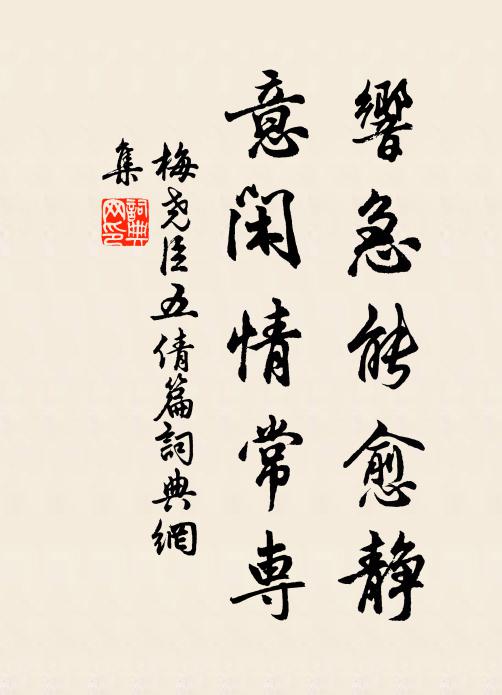 響急能愈静
意閑情常専
梅尧臣五倩篇詞典網
集
詞典
网印